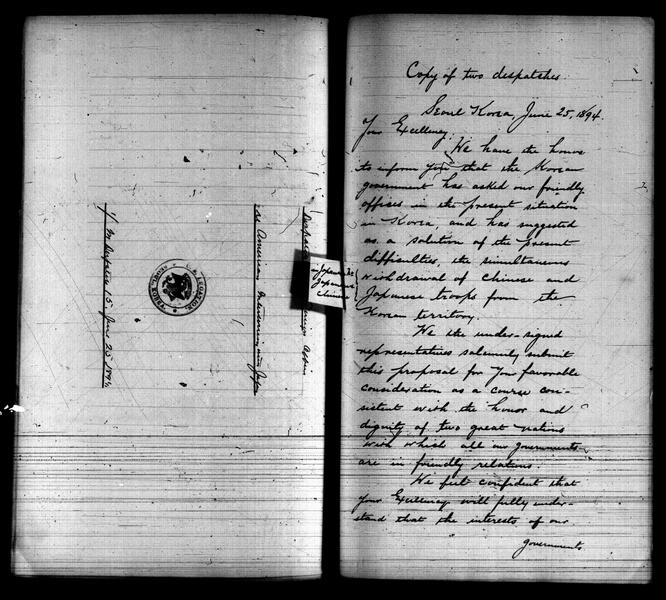 1/ In Despatch No. 15 June 25 1894
U.S. LEGATION
SEOUL, KOREA
Japanese &
Japanese
Chinese
Copy of two despatches.
Seoul Korea, June 25, 1894.
Your Excellency:
We have the honor
to inform you that the Korean
government has asked our friendly
offices in the present situation
in Korea, and has suggested
as a solution of the present
difficulties, the simultaneous
withdrawal of Chinese and
Japanese troops from the
Korean territory.
We the under-signed
representatives solemnly submit
this proposal for your favorable
consideration as a course con-
sistent with the honor and
dignity of two great nations
with which all our governments
are in friendly relations.
We feel confident that
your Excellency will fully under-
stand that the interests of our
governments